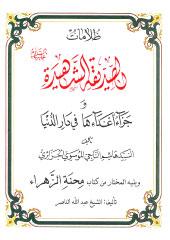 ظلامات
الصديقة الشهيدة
و
جزاء أعدائها في دار الدنيا
تأليف
السيد هاشم الناجي الموسوي الجزائري
ويليه المختار من كتاب محنة الزهراء
تأليف: الشيخ عبد الله الناصر